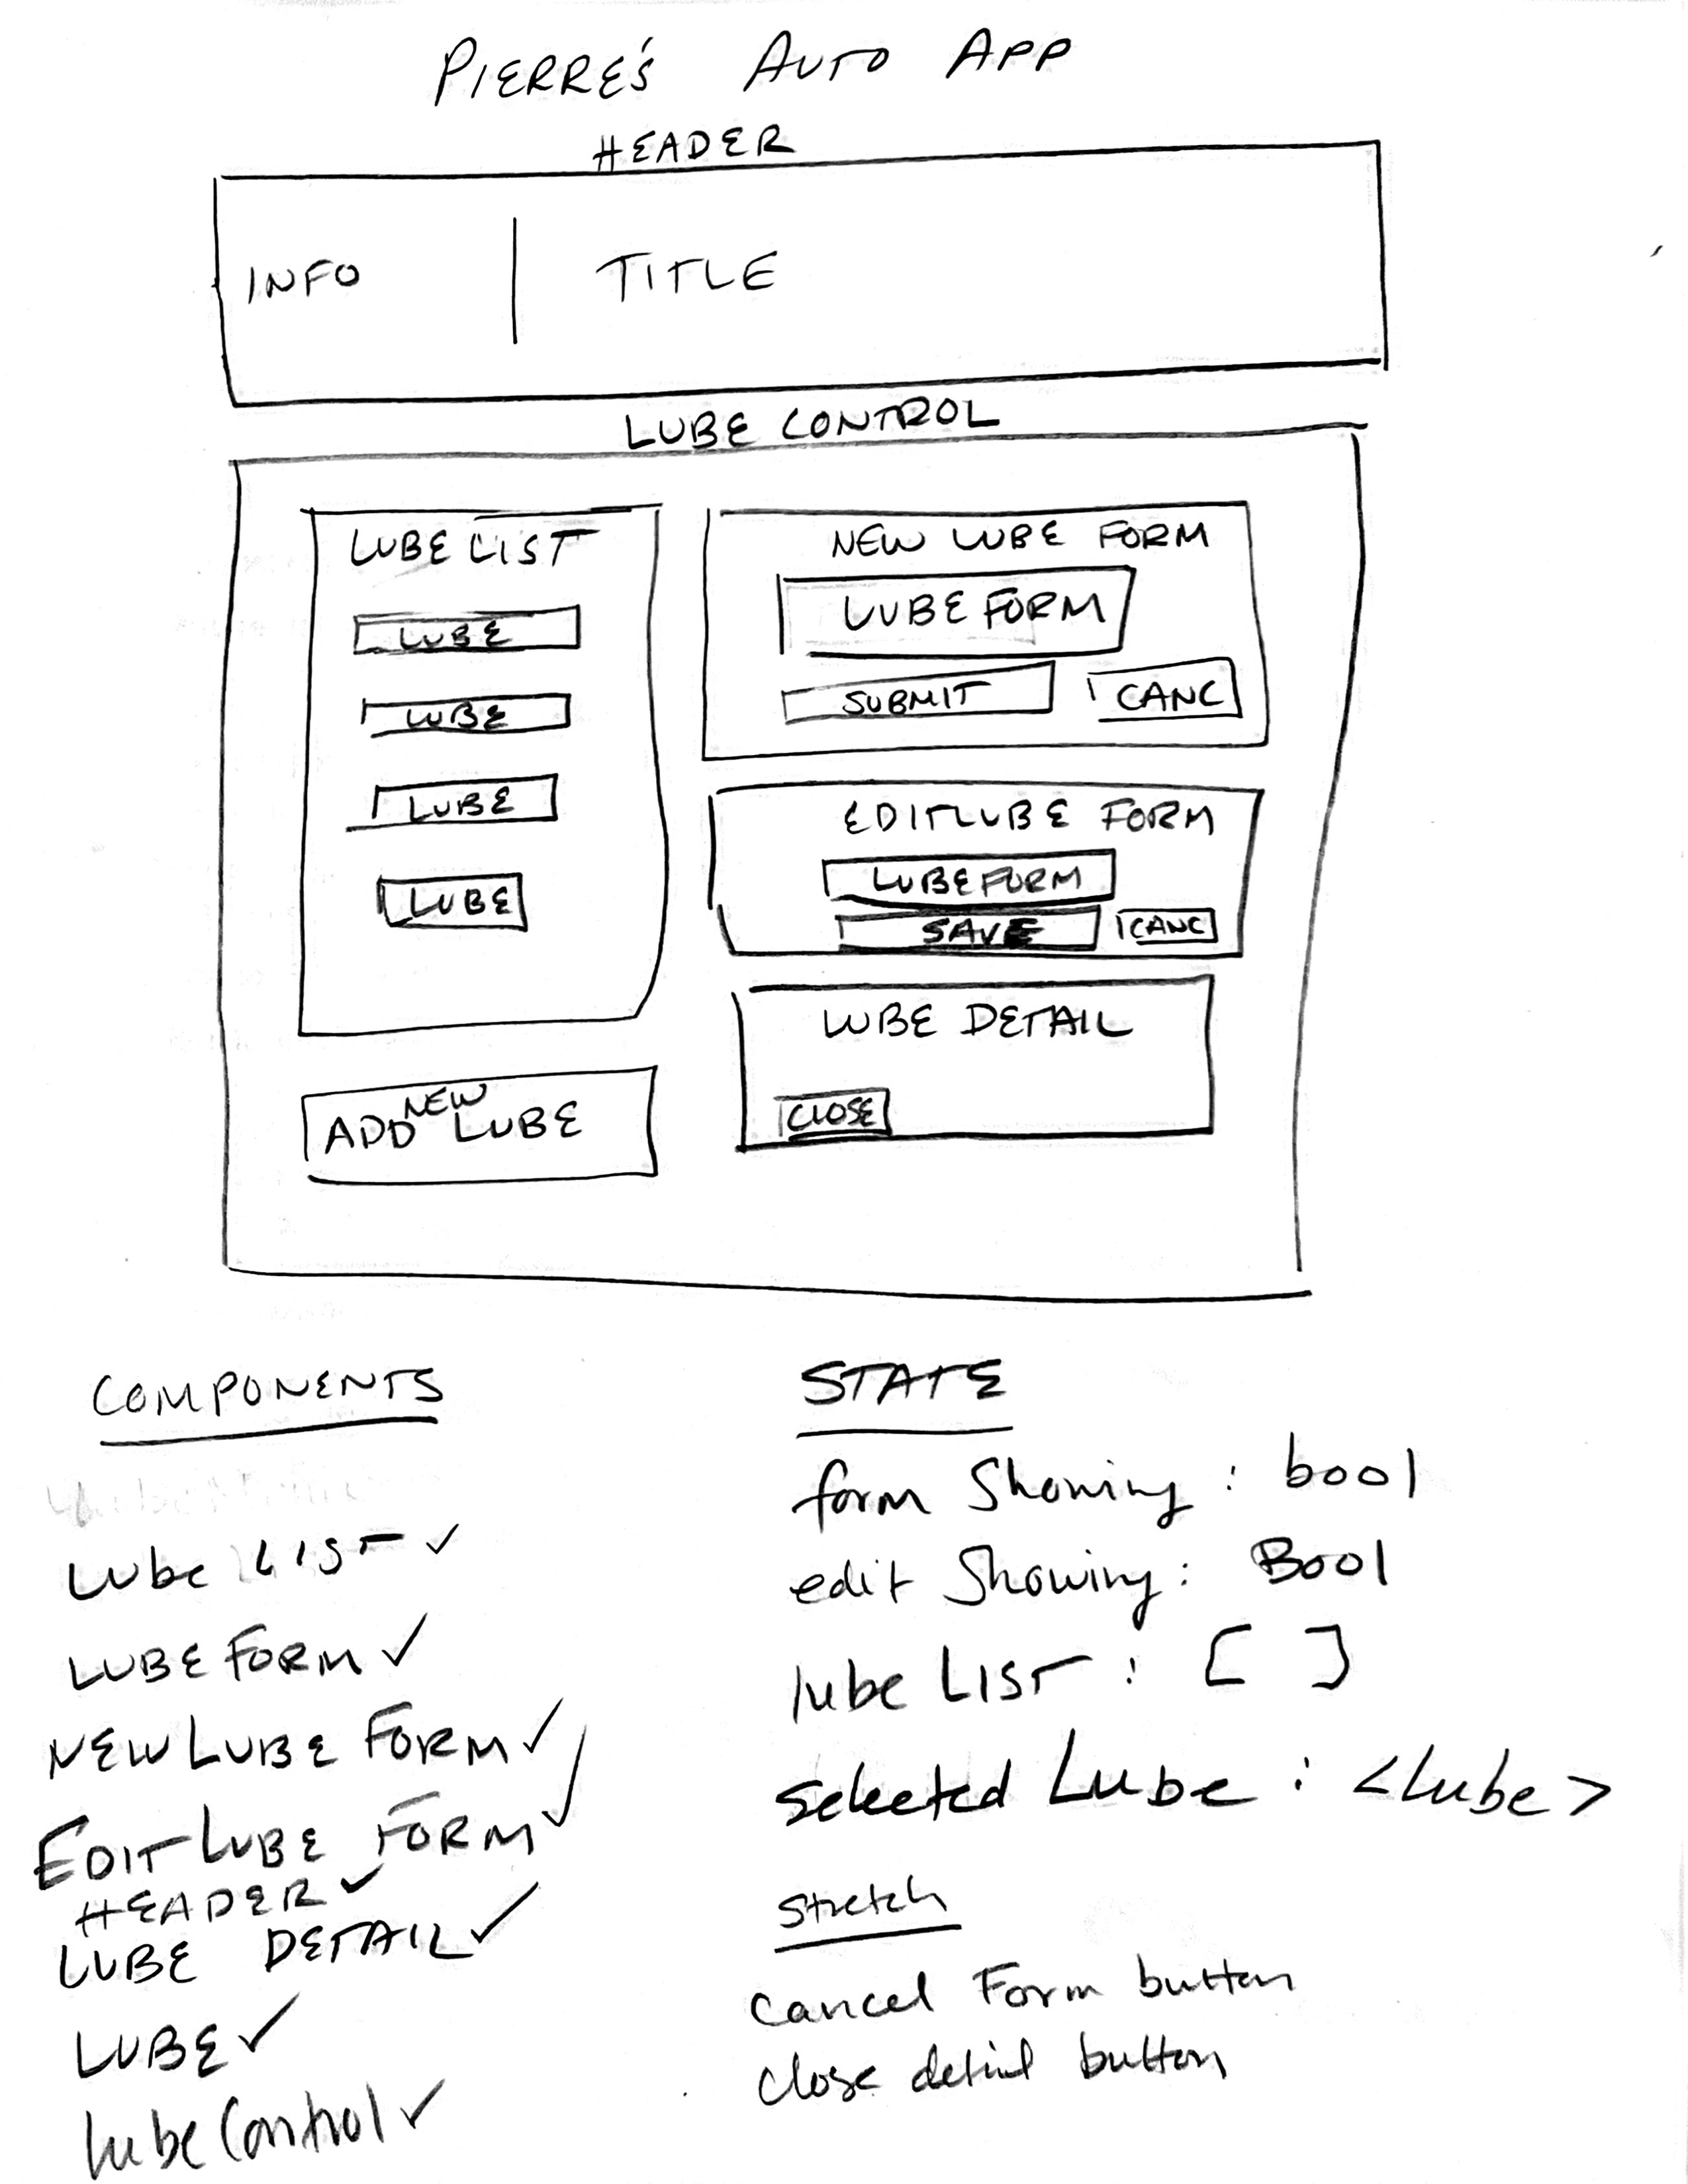 PIERRE'S AUTO APP
HEADER
INFO
TITLE
LUBE CONTROL
LUBE LIST
LUBE
LUBE
LUBE
LUBE
ADD NEW LUBE
NEW LUBE FORM
LUBE FORM
SUBMIT
CANC
EDIT LUBE FORM
LUBE FORM
SAVE
CANC
LUBE DETAIL
CLOSE
COMPONENTS
Lube LIST ✓
LUBE FORM ✓
NEW LUBE FORM ✓
EDIT LUBE FORM ✓
HEADER ✓
LUBE DETAIL ✓
LUBE ✓
lube Control ✓
STATE
form Showing : bool
edit Showing : Bool
lube LIST : [ ]
Selected Lube : <Lube>
Stretch
Cancel Form button
Close detail button